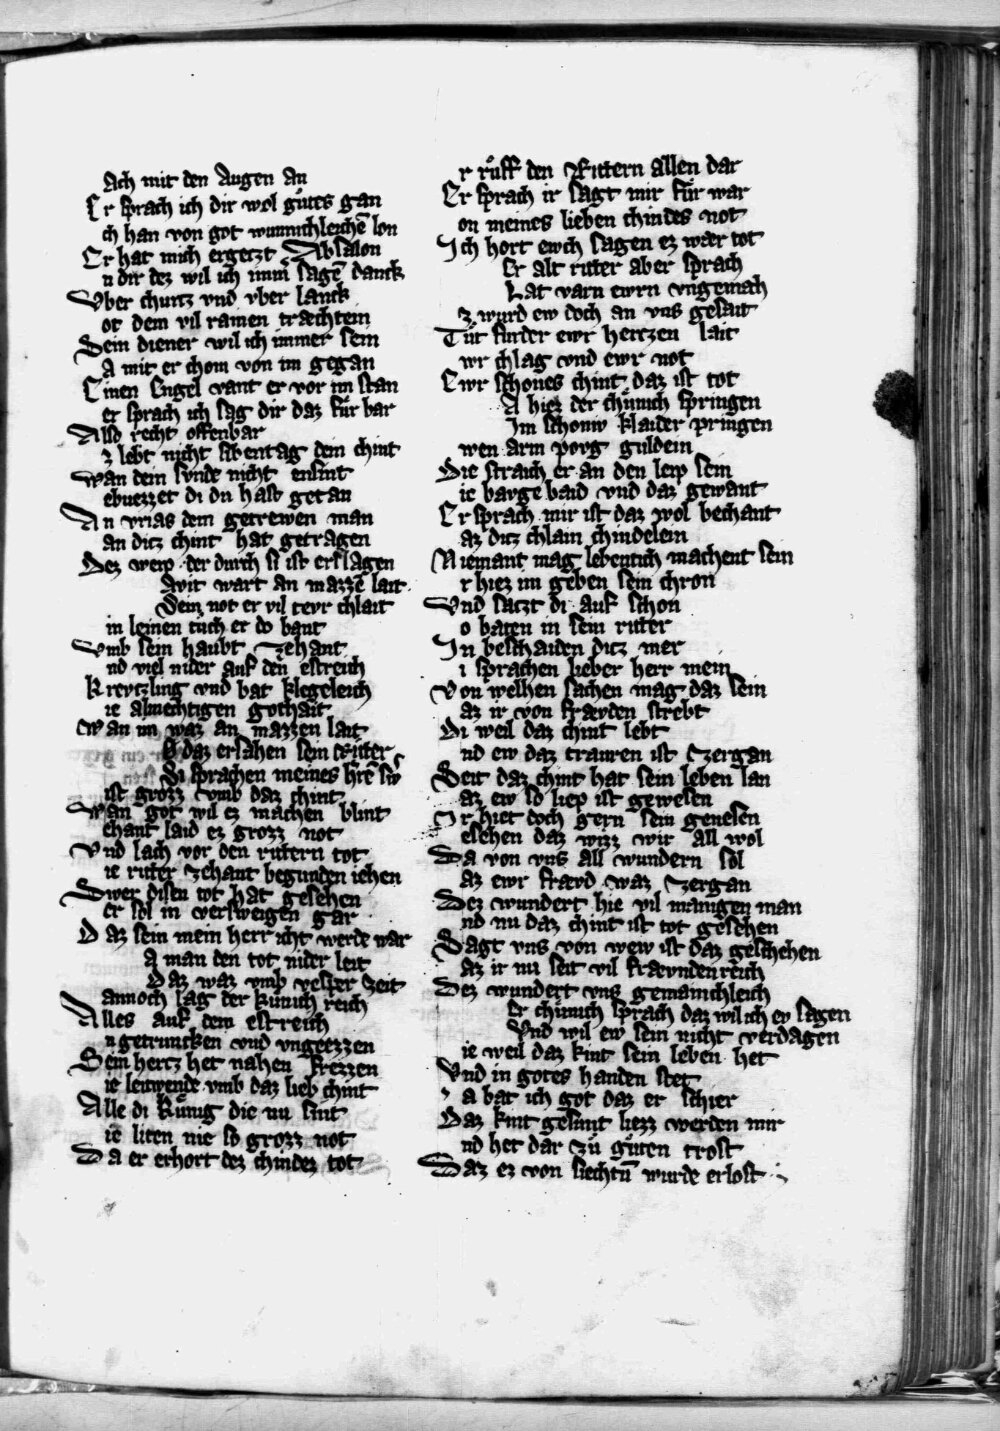 Ach mit den Augen an
Er sprach ich dir wol gůtes gan
ch han von got wunnichleichē lon
Er hat mich ergetzt Absalon
n dir dez wil ich imm̄ sagē danck
Vber churtz vnd vber lanck
ot dem vil ramen trachtein
Dein diener wil ich immer sein
A mit er chom von im gegan
Einen Engel vant er vor im stan
er sprach ich sag dir daz für bar
Also recht offenbar
z lebt nicht sibentag dein chint
wan dein sunde nicht ensint
ebuezzet di du hast getan
An vrias dem getrewen man
an ditz chint hat getragen
Dez weip der durch si ist erslagen
Auit wart an mazzē lait
Sein not er vil tevr chlait
in leinen tůch er do bant
Vmb sein haubt Zehant
nd viel nider auf den estreich
Kreytzling vnd bat klegeleich
ie almechtigen gothait
Wan im waz an mazzen lait
O daz ersahen sein Ritter
Di sprachen meines hrē sw̄
ist grozz vmb daz chint
Wan got wil ez machen blint
ehant laid ez grozz not
Vnd lach vor den rittern tot
ie ritter zehant begunden iehen
Swer disen tot hat gesehen
er sol in versweigen gar
Daz sein mein herr icht werde war
A man den tot nider leit
Daz waz vmb vesper zeit
annoch lag der künich reich
Alles auf dem estreich
ngetruncken vnd vngeezzen
Sein hertz het nahen frezzen
ie leitwende vmb daz lieb chint
Alle di Kůnig die nu sint
ie liten nie so grozz not
Da er erhort dez chindez tot
r růff den Rittern allen dar
Er sprach ir sagt mir für war
on meines lieben chindes not
Ich hort ewch sagen ez wær tot
Er alt ritter aber sprach
Lat varn ewrn vngemach
z wurd ew doch an vns gesait
Tüt furder ewr hertzen lait
wr chlag vnd ewr not
Ewr schones chint daz ist tot
A hiez der chünich springen
Im schonw klaider pringen
wen arm porg guldein
Die straich er an den leip sein
ie barge baid vnd daz gewant
Er sprach mir ist daz wol bechant
az ditz chlain chindelein
Niemant mag lebentich machent sein
r hiez im geben sein chron
Vnd satzt di auf schon
o baten in sein ritter
In beschaiden ditz mer
i sprachen lieber herr mein
Von welhen sachen mag daz sein
az ir von frævden strebt
Di weil daz chint lebt
nd ew daz trauren ist Zergan
Seit daz chint hat sein leben lan
az ew so liep ist gewesen
Ir hiet doch gern sein genesen
esehen daz wizz wir all wol
Da von vns all wundern sol
az ewr frævd waz Zergan
Dez wundert hie vil manigen man
nd nu daz chint ist tot gesehen
Sagt vns von wew ist daz geschehen
az ir nu seit vil frævndenreich
Dez wundert vns gemainchleich
Er chünich sprach daz wil ich ev sagen
Vnd wil ew sein nicht verdagen
ie weil daz kint sein leben het
Vnd in gotes handen stet
a bat ich got daz er schier
Daz kint gesunt liezz werden mir
nd het dar zů gůten trost
Daz ez von siechtū wurde erlost